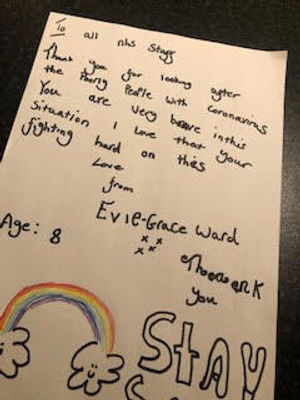 To all nhs Staff
Thank you for looking after
the Poorly People with coronavirus
You are very brave in this
Situation I Love that your
fighting hard on this
Love
from
Evie-Grace Ward
x x
x x
Age: 8
Thank
You
Stay